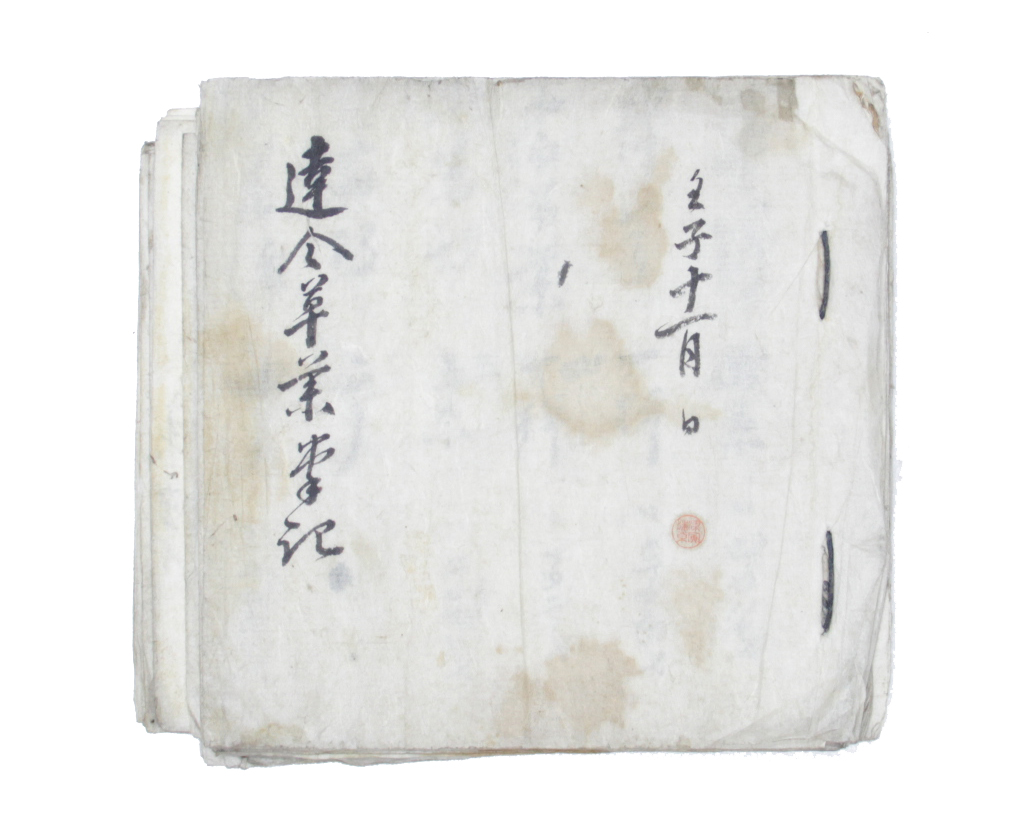 壬子十一月 日
達令草業掌記